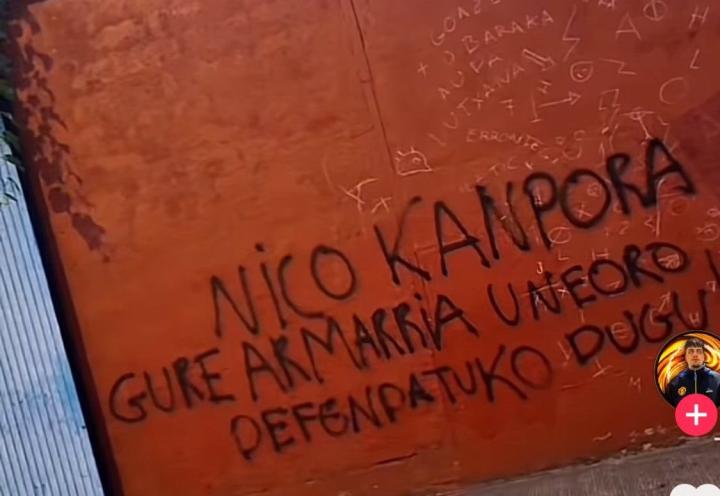 GOAZ
BARAKA
AUPA
UTXANA
ERRONIE
NiCO KANPORA
GURE ARMARRiA UNEORO
DEFENDATUKO DUGU